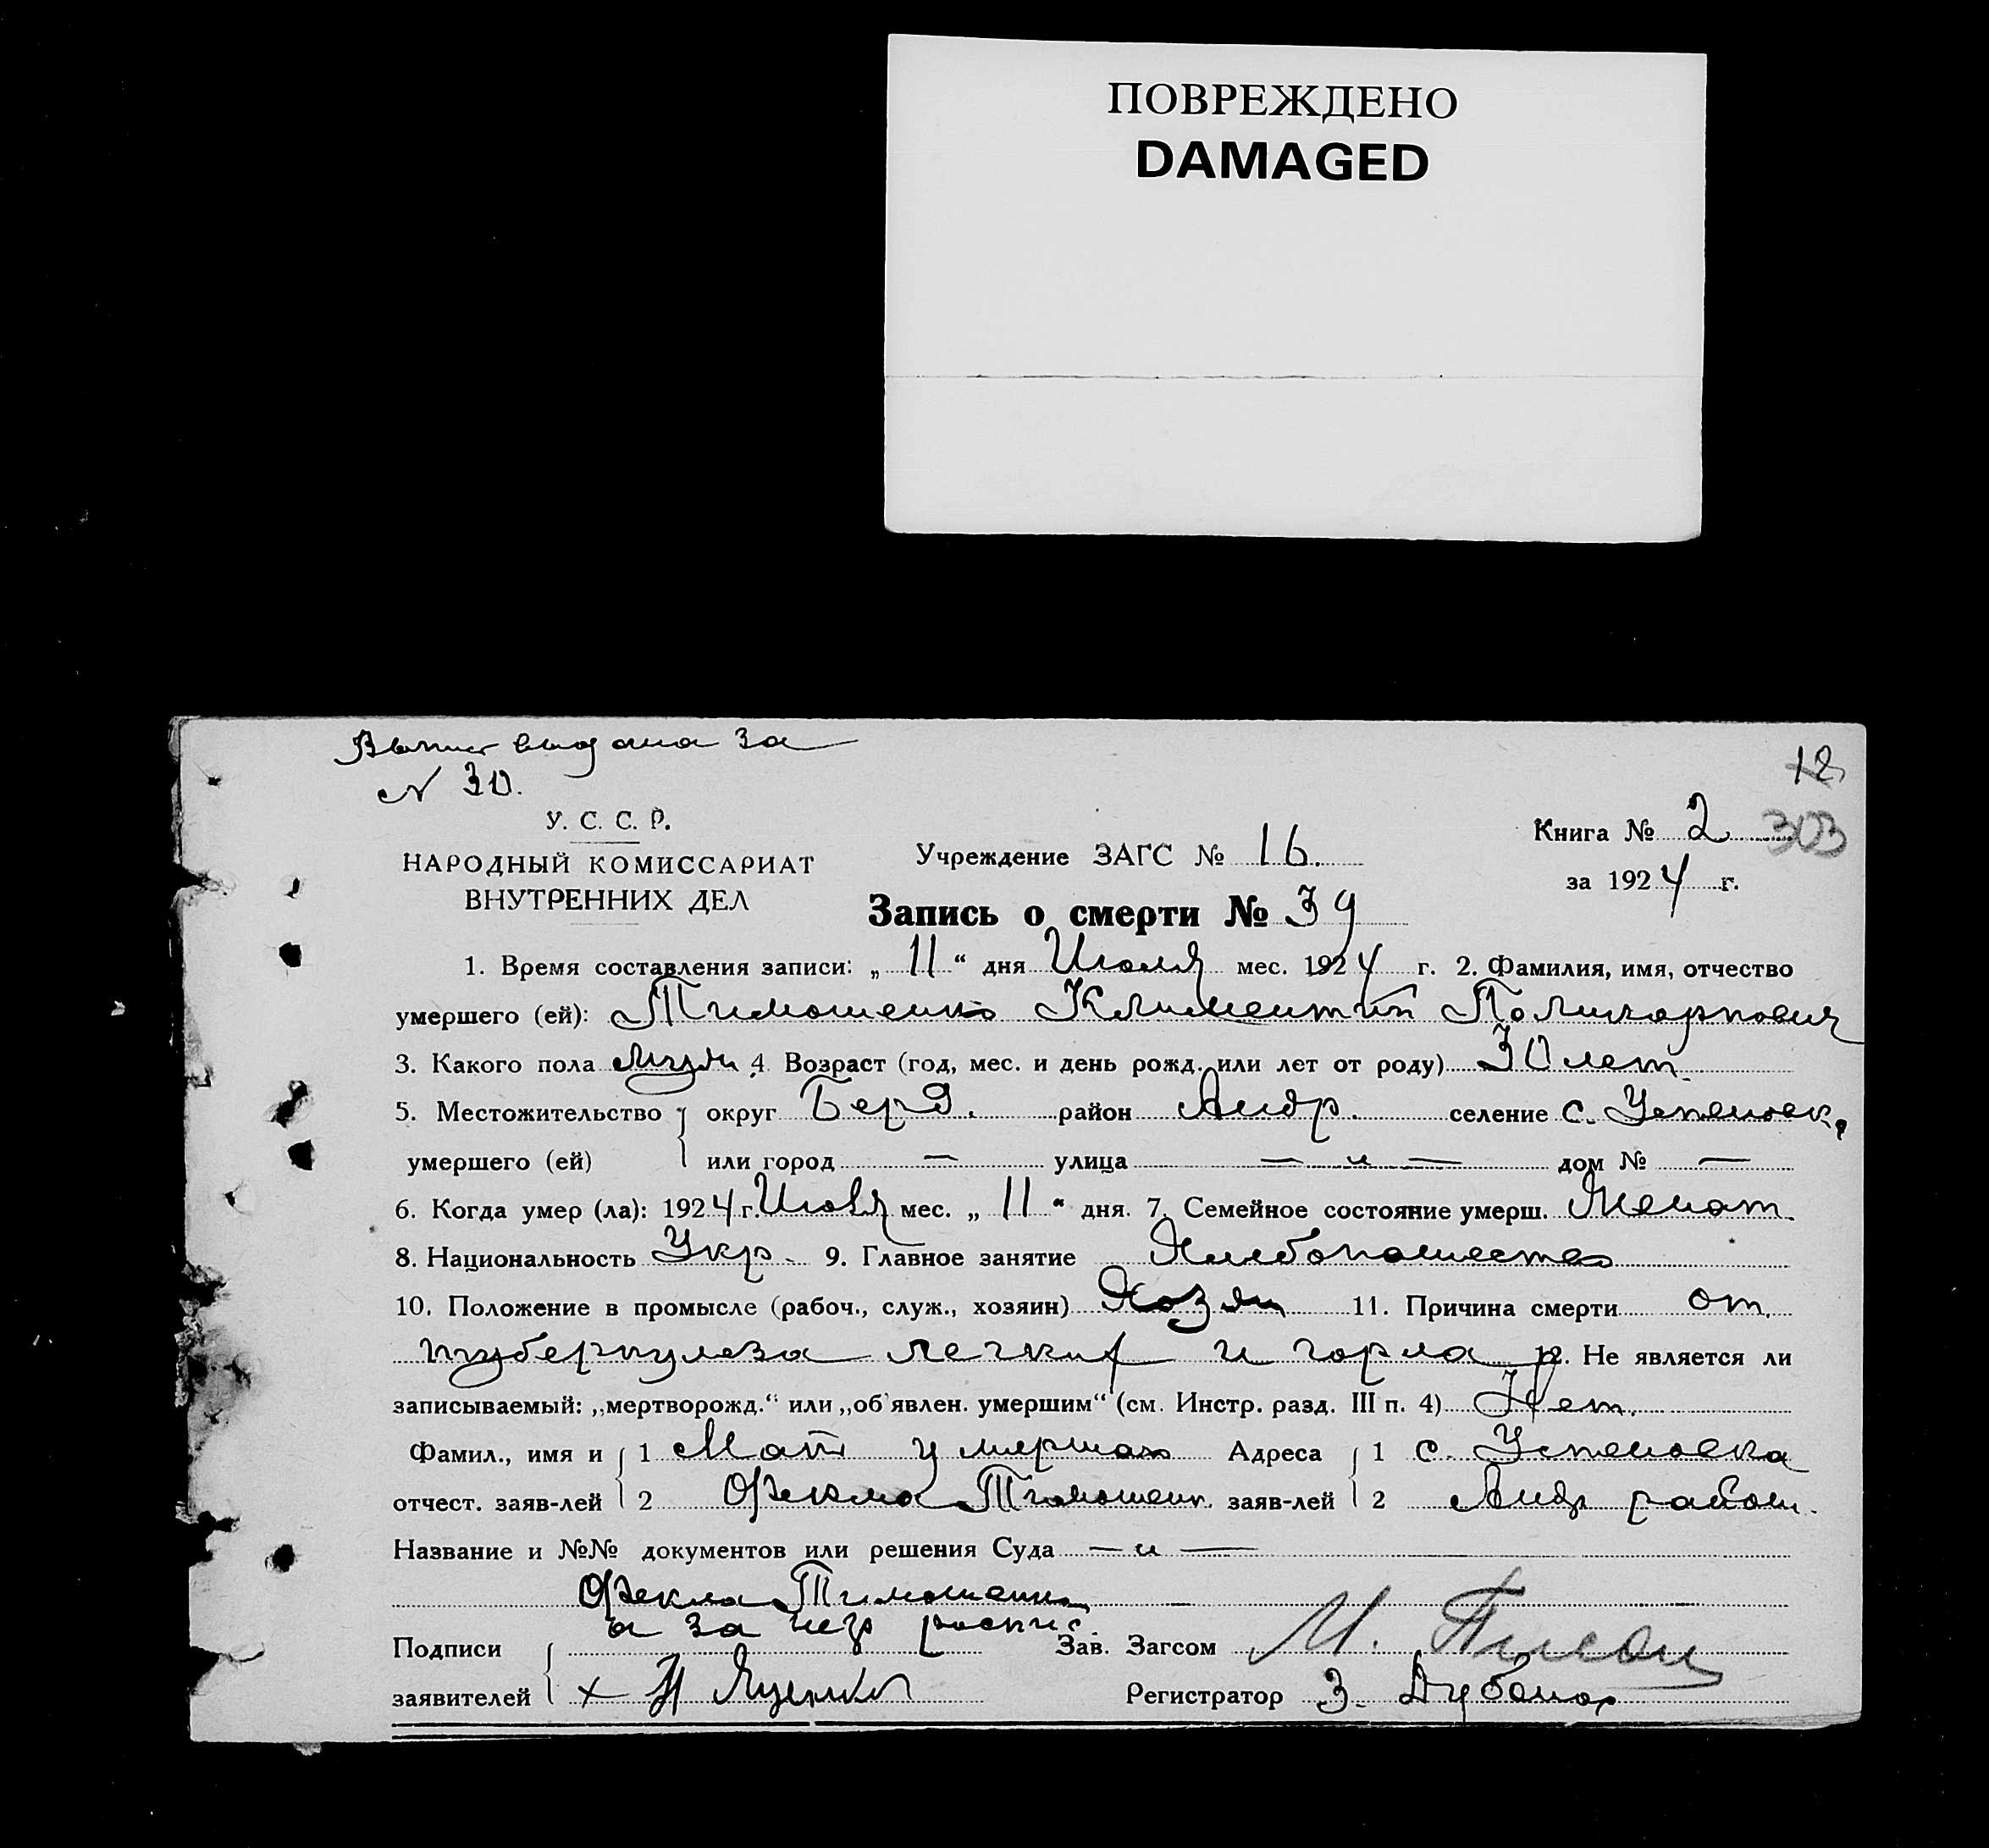 ПОВРЕЖДЕНО
DAMAGED
выдана за
N 30.
12
У. С. С. Р.
НАРОДНЫЙ КОМИССАРИАТ
ВНУТРЕННИХ ДЕЛ
Учреждение ЗАГС № 16.
Книга № 2
303
за 1924 г.
Запись о смерти № 39
1. Время составления записи: „ 11 “ дня Июля мес. 1924 г. 2. Фамилия, имя, отчество
умершего (ей): Тимошенко Климентий Поликарпович
3. Какого пола мужч 4. Возраст (год, мес. и день рожд. или лет от роду) 30 лет.
5. Местожительство округ Берд. район Андр. селение с. Успеновк.
умершего (ей) или город — улица — и — дом № —
6. Когда умер (ла): 1924 г. Июля мес. „ 11 “ дня. 7. Семейное состояние умерш. Женат.
8. Национальность Укр. 9. Главное занятие Хлебопашество
10. Положение в промысле (рабоч., служ., хозяин) Хозяин 11. Причина смерти от
туберкулеза легких и горла 12. Не является ли
записываемый: „мертворожд.“ или „об'явлен. умершим“ (см. Инстр. разд. III п. 4) Нет.
Фамил., имя и 1 Мать умершаго Адреса 1 с. Успеновка
отчест. заяв-лей 2 Фекла Тимошенк. заяв-лей 2 Андр район.
Название и №№ документов или решения Суда — и —
Фекла Тимошенко
а за негр роспис.
Подписи Зав. Загсом И.
заявителей + Н Яценко Регистратор З.